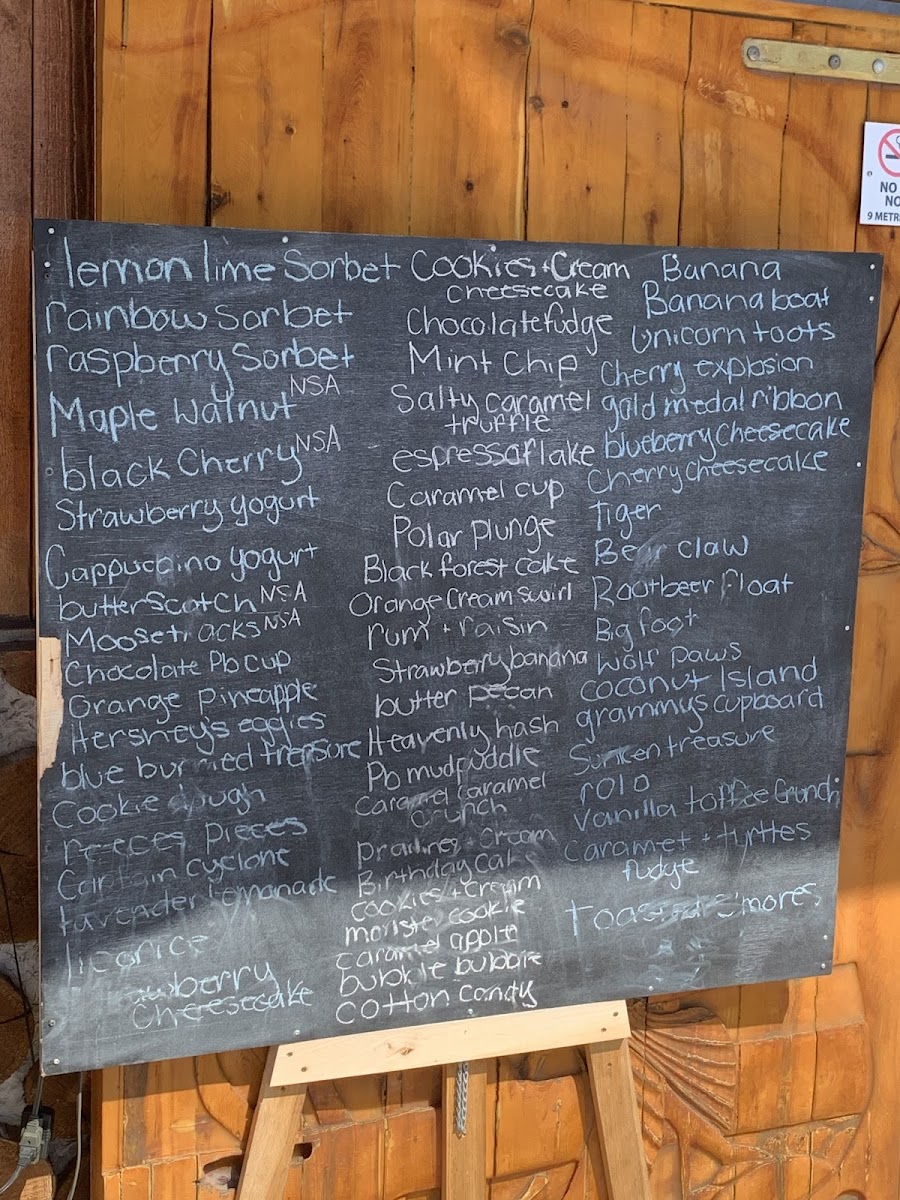 lemon lime Sorbet
rainbow sorbet
raspberry Sorbet
Maple Walnut NSA
black Cherry NSA
Strawberry yogurt
Cappuccino yogurt
butterscotch NSA
Moosetracks NSA
Chocolate Pb cup
Orange pineapple
Hershey's eggies
blue burried treasure
Cookie dough
reeces pieces
Captain cyclone
lavender lemonade
licorice
awberry
cheesecake
Cookies + Cream
cheesecake
Chocolate fudge
Mint Chip
Salty caramel
truffle
espressoflake
Caramel cup
Polar plunge
Black forest cake
Orange Cream swirl
rum + raisin
Strawberry banana
butter pecan
Heavenly hash
Pb mudpuddle
Caramel caramel
crunch
pralines + cream
Birthday cake
cookies + cream
monster cookie
caramel apple
bubble bubble
cotton candy
Banana
Banana boat
Unicorn toots
Cherry explosion
gold medal ribbon
blueberry cheesecake
Cherry cheesecake
Tiger
Bear claw
Rootbeer float
Big foot
Wolf paws
coconut Island
grammys cupboard
Sunken treasure
rolo
Vanilla toffee Crunch
Caramel + turtles
fudge
Toasted S'mores
NO
NO
9 METR